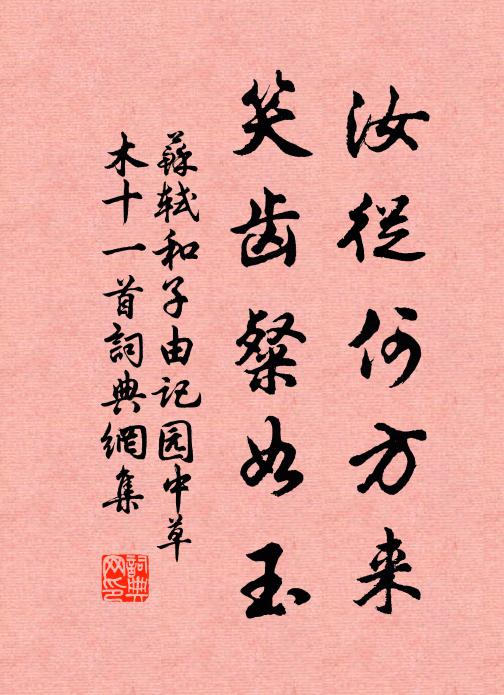 汝從何方来
笑齿粲如玉
蘇轼和子由记园中草
木十一首詞典網集
詞典
网印